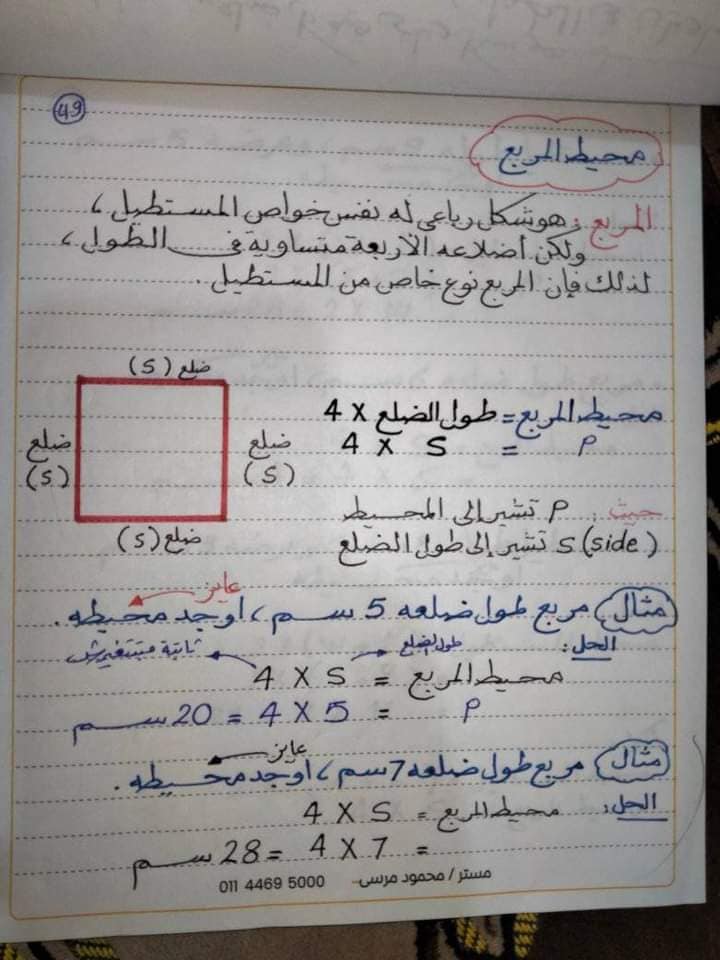 49
محيط المربع
المربع : هو شكل رباعي له نفس خواص المستطيل ،
ولكن أضلاعه الأربعة متساوية في الطول ،
لذلك فإن المربع نوع خاص من المستطيل .
ضلع (S)
ضلع (S)
ضلع (S)
ضلع (S)
محيط المربع = طول الضلع X 4
P = S X 4
حيث : P تشير إلى المحيط
S (side) تشير إلى طول الضلع
عايز
مثال مربع طول ضلعه 5 سم ، اوجد محيطه .
الحل : طول الضلع ثابتة مبتتغيرش
محيط المربع = S X 4
P = 5 X 4 = 20 سم
عايز
مثال مربع طول ضلعه 7 سم ، اوجد محيطه .
الحل : محيط المربع = S X 4
= 7 X 4 = 28 سم
مستر / محمود مرسى 011 4469 5000